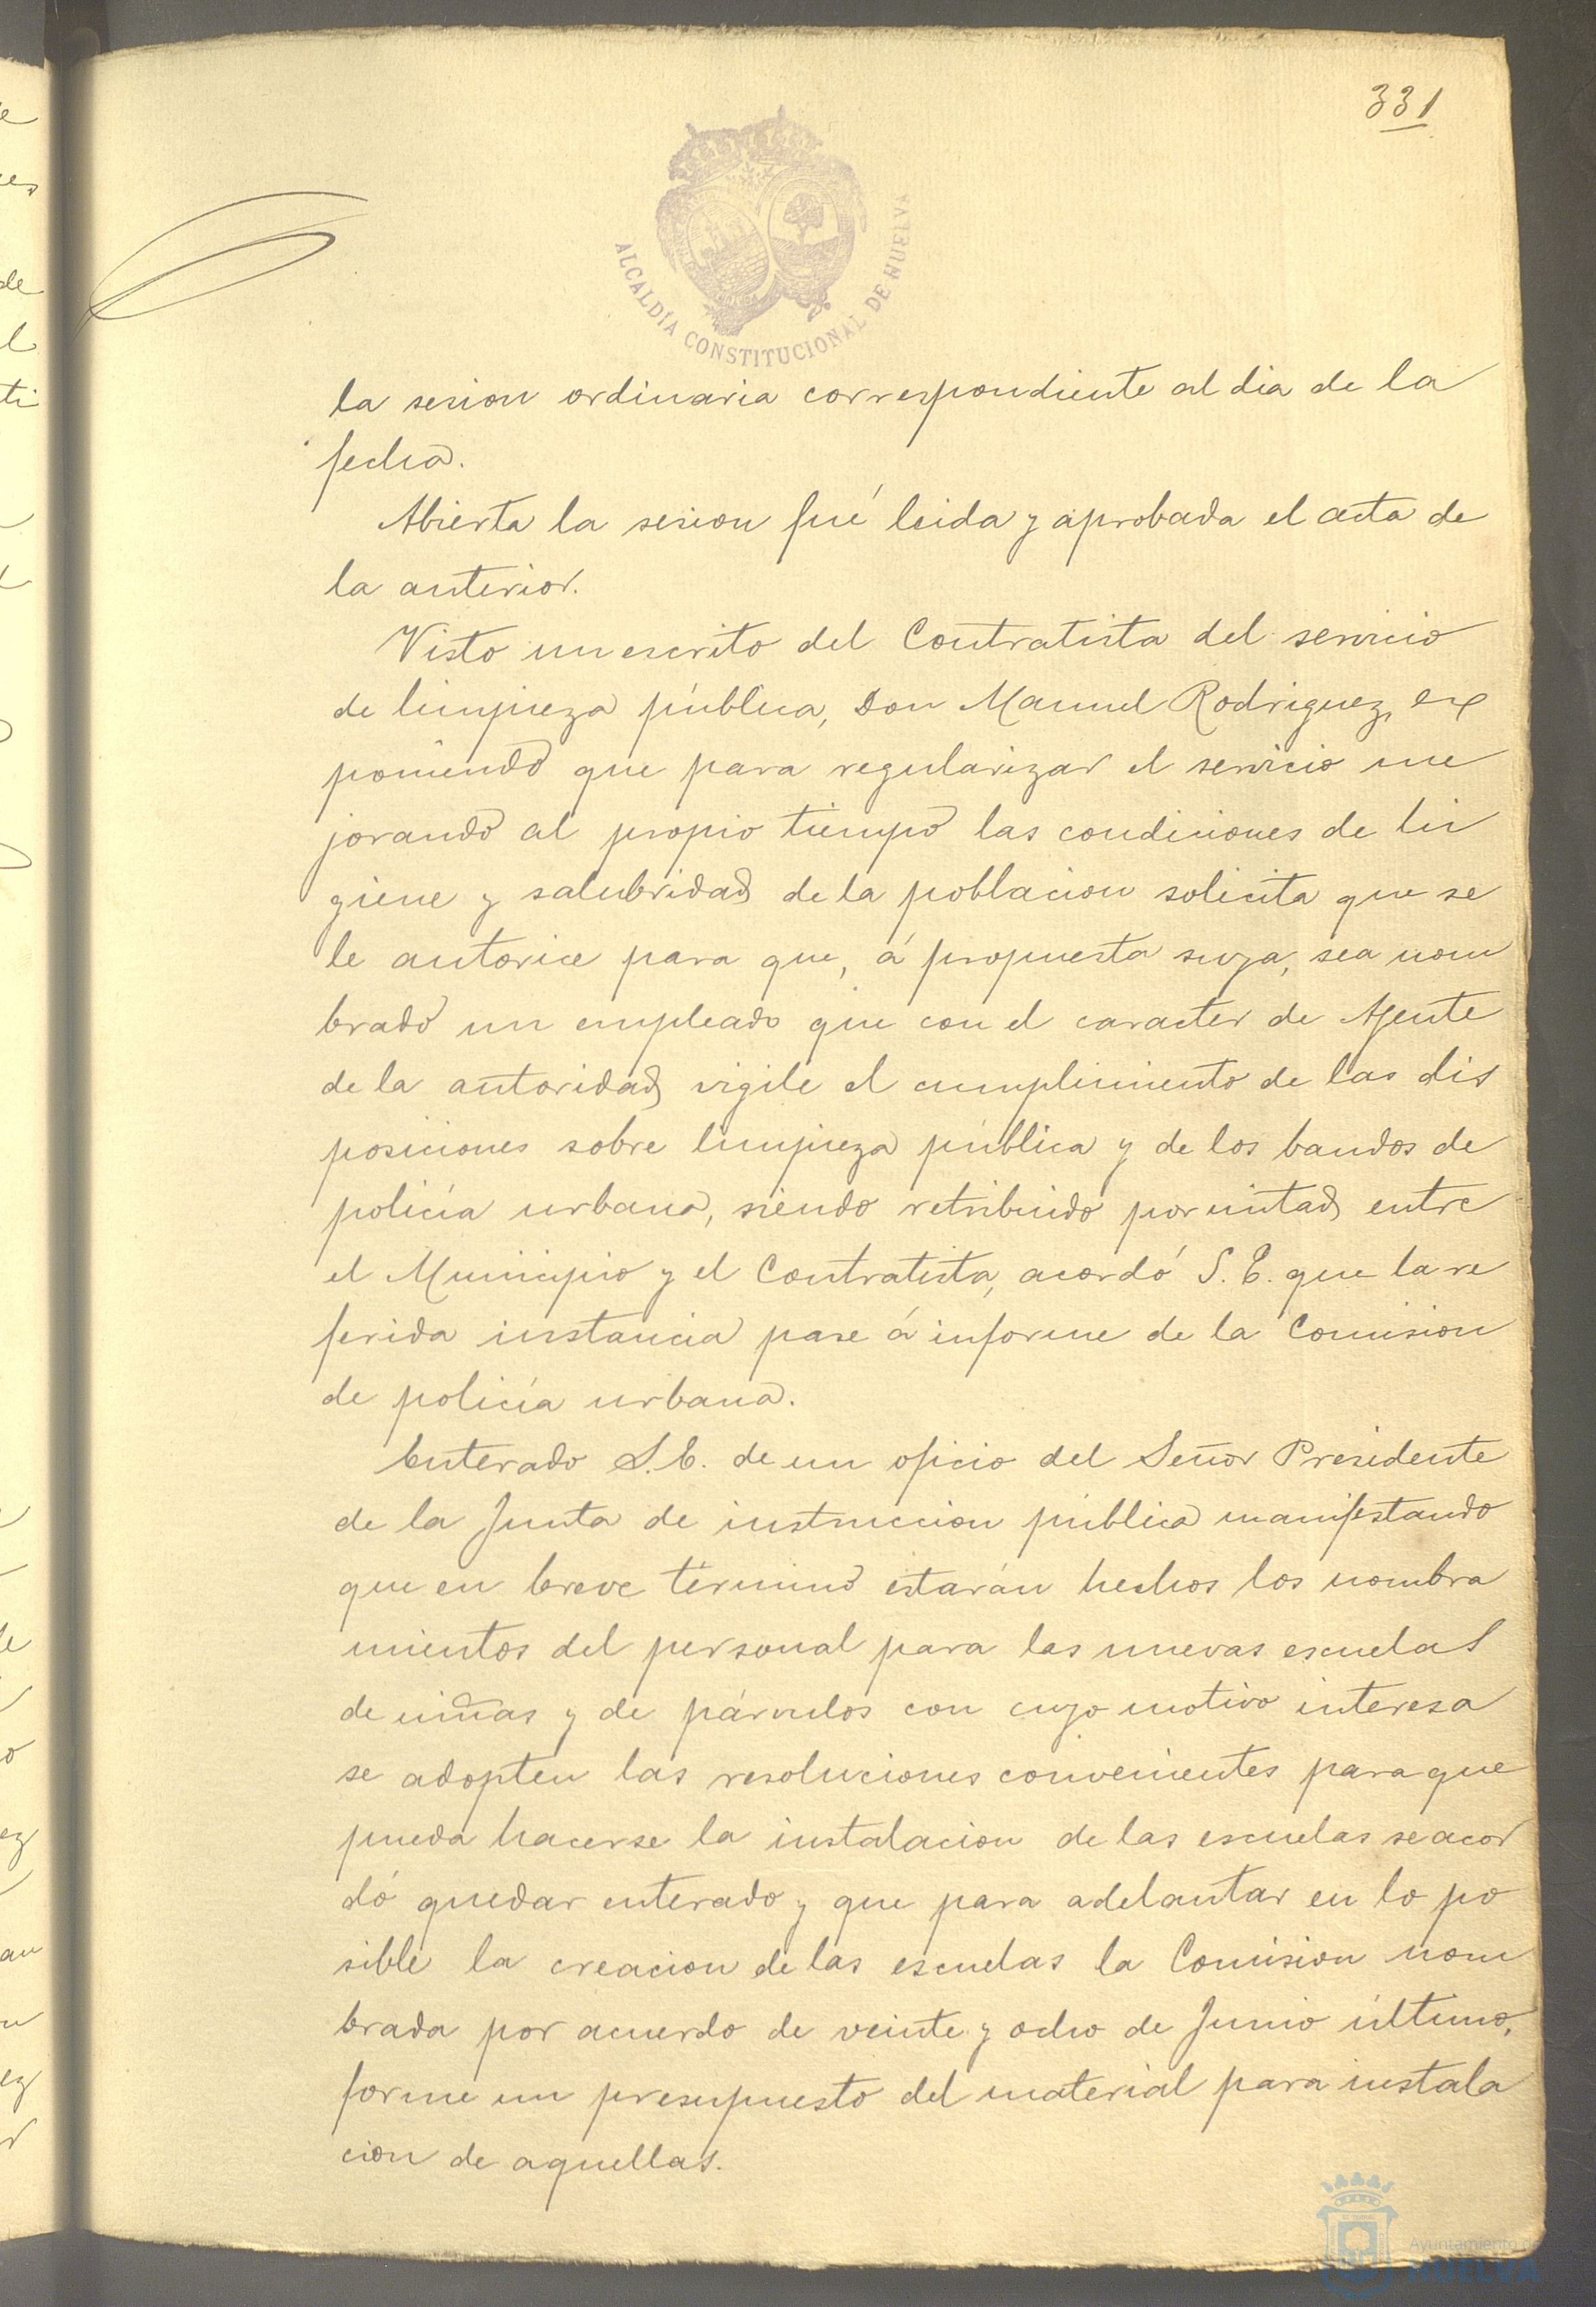 331
ALCALDÍA CONSTITUCIONAL DE HUELVA
la sesion ordinaria correspondiente al dia de la
fecha.
Abierta la sesion fué leida y aprobada el acta de
la anterior.
Visto un escrito del Contratista del servicio
de limpieza pública, Don Manuel Rodriguez, ex
poniendo que para regularizar el servicio me
jorando al propio tiempo las condiciones de hi
giene y salubridad de la poblacion solicita que se
le autorice para que, á propuesta suya, sea nom
brado un empleado que con el caracter de Agente
de la autoridad vigile el cumplimiento de las dis
posiciones sobre limpieza pública y de los bandos de
policía urbana, siendo retribuido por mitad entre
el Municipio y el Contratista, acordó S. E. que la re
ferida instancia pase á informe de la Comision
de policía urbana.
Enterado S. E. de un oficio del Señor Presidente
de la Junta de instruccion pública manifestando
que en breve término estarán hechos los nombra
mientos del personal para las nuevas escuelas
de niñas y de párvulos con cuyo motivo interesa
se adopten las resoluciones convenientes para que
pueda hacerse la instalacion de las escuelas se acor
dó quedar enterado y que para adelantar en lo po
sible la creacion de las escuelas la Comision nom
brada por acuerdo de veinte y ocho de Junio último,
forme un presupuesto del material para instala
cion de aquellas.
Ayuntamiento de
HUELVA